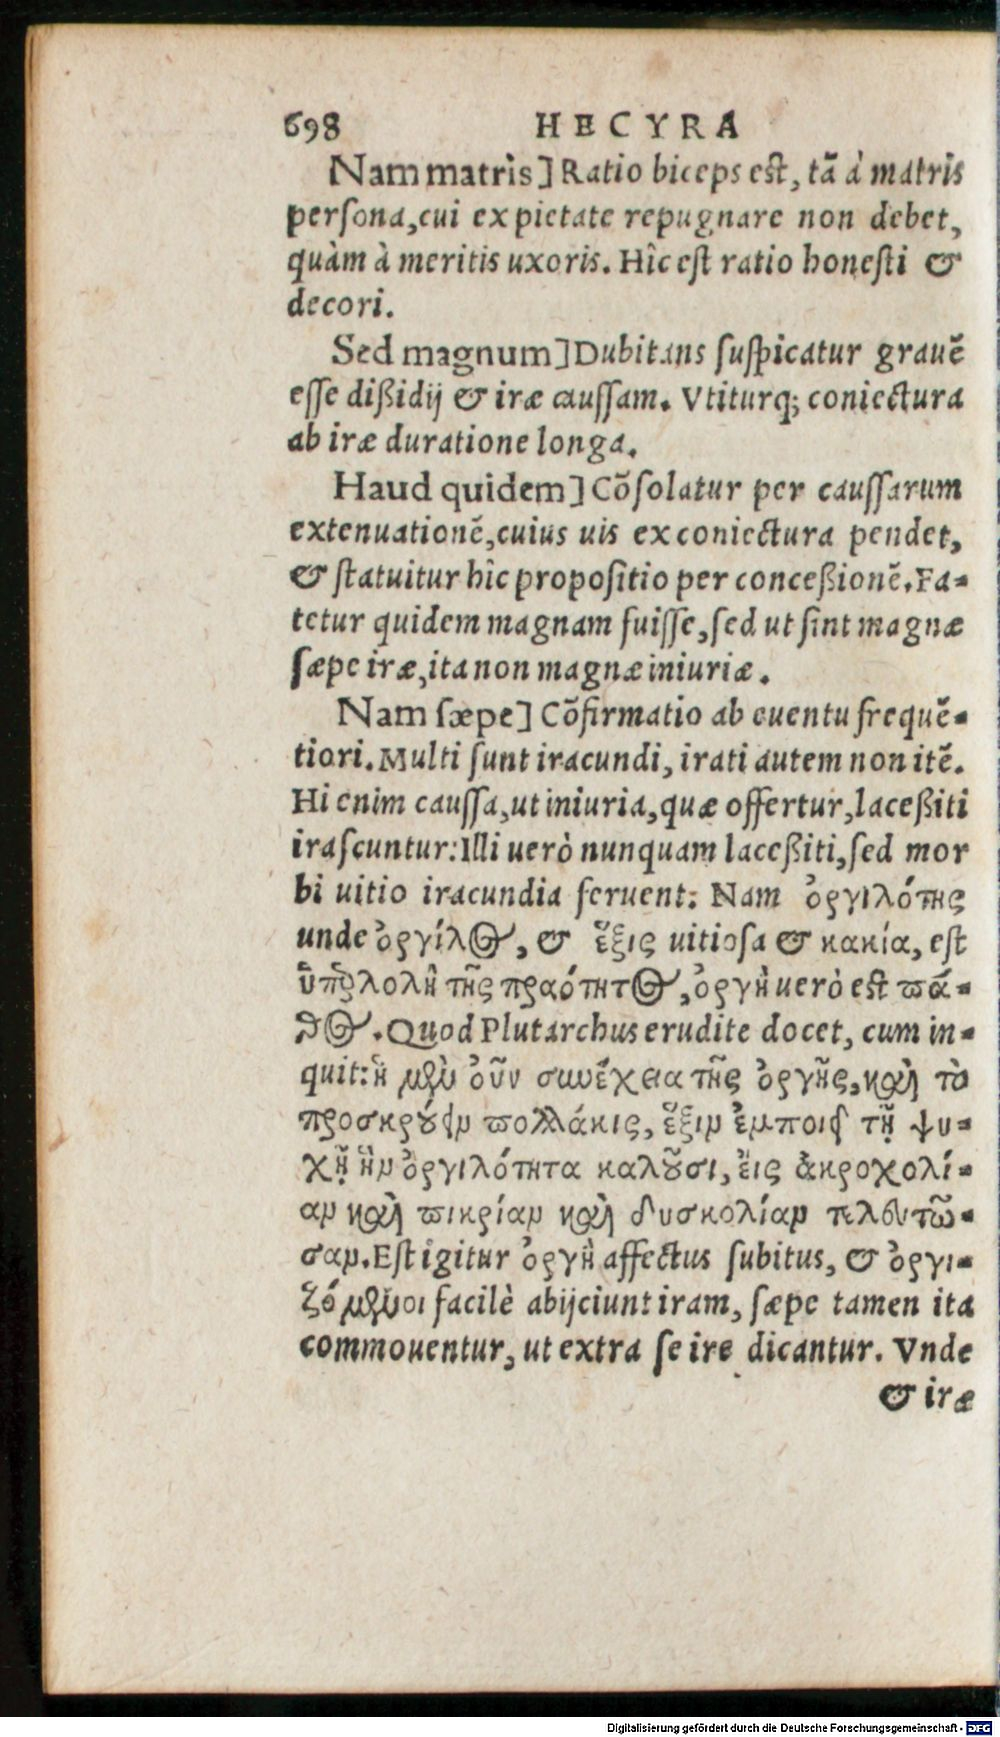 698 HECYRA
Nam matris] Ratio biceps est, tā à matris
persona, cui ex pietate repugnare non debet,
quàm à meritis uxoris. Hîc est ratio honesti &
decori.
Sed magnum] Dubitans suspicatur grauē
esse dißidij & iræ caussam. Vtiturq; coniectura
ab iræ duratione longa.
Haud quidem] Cōsolatur per caussarum
extenuationē, cuius uis ex coniectura pendet,
& statuitur hîc propositio per conceßionē. Fa-
tetur quidem magnam fuisse, sed ut sint magnæ
sæpe iræ, ita non magnæ iniuriæ.
Nam sæpe] Cōfirmatio ab euentu frequē-
tiori. Multi sunt iracundi, irati autem non itē.
Hi enim caussa, ut iniuria, quæ offertur, laceßiti
irascuntur: Illi uerò nunquam laceßiti, sed mor
bi uitio iracundia feruent: Nam ὀργιλότης
unde ὀργίλος, & ἕξις uitiosa & κακία, est
ὑπερβολὴ τῆς πραότητος, ὀργὴ uerò est πά-
θος. Quod Plutarchus erudite docet, cum in-
quit: ἡ μὲν οὖν συνέχεια τῆς ὀργῆς, καὶ τὸ
προσκρούειν πολλάκις, ἕξιν ἐμποιεῖ τῇ ψυ-
χῇ ἣν ὀργιλότητα καλοῦσι, εἰς ἀκροχολί-
αν καὶ πικρίαν καὶ δυσκολίαν τελευτῶ-
σαν. Est igitur ὀργὴ affectus subitus, & ὀργι-
ζόμενοι facilè abijciunt iram, sæpe tamen ita
commouentur, ut extra se ire dicantur. Vnde
& iræ
Digitalisierung gefördert durch die Deutsche Forschungsgemeinschaft - DFG